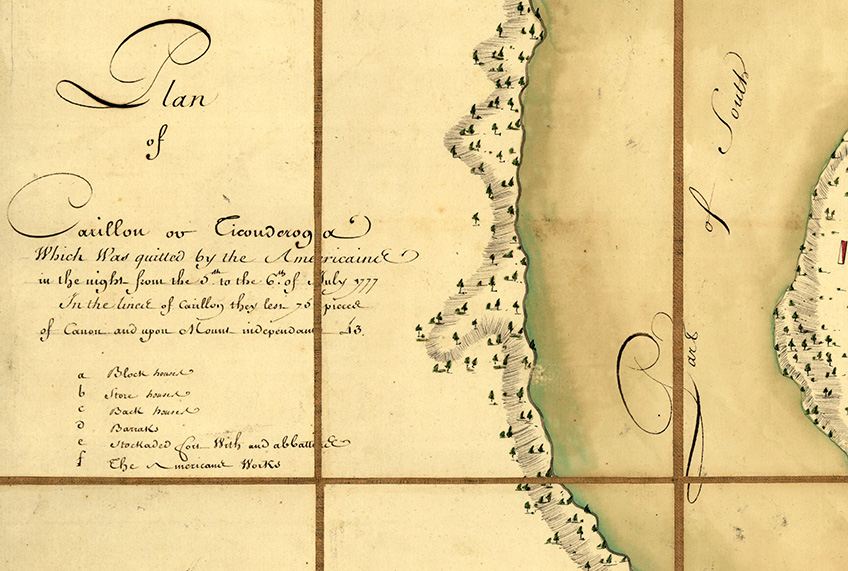 Plan
of
Carillon ov Ticonderoga
Which Was quitted by the Americaine
in the night from the 5th to the 6th of July 1777
In the lines of Carillon they left 75 pieces
of Canon and upon Mount independant 43.
a Block houses
b Store houses
c Back houses
d Barraks
e Stockaded fort With and abbattice
f The Americans Works
Part of South